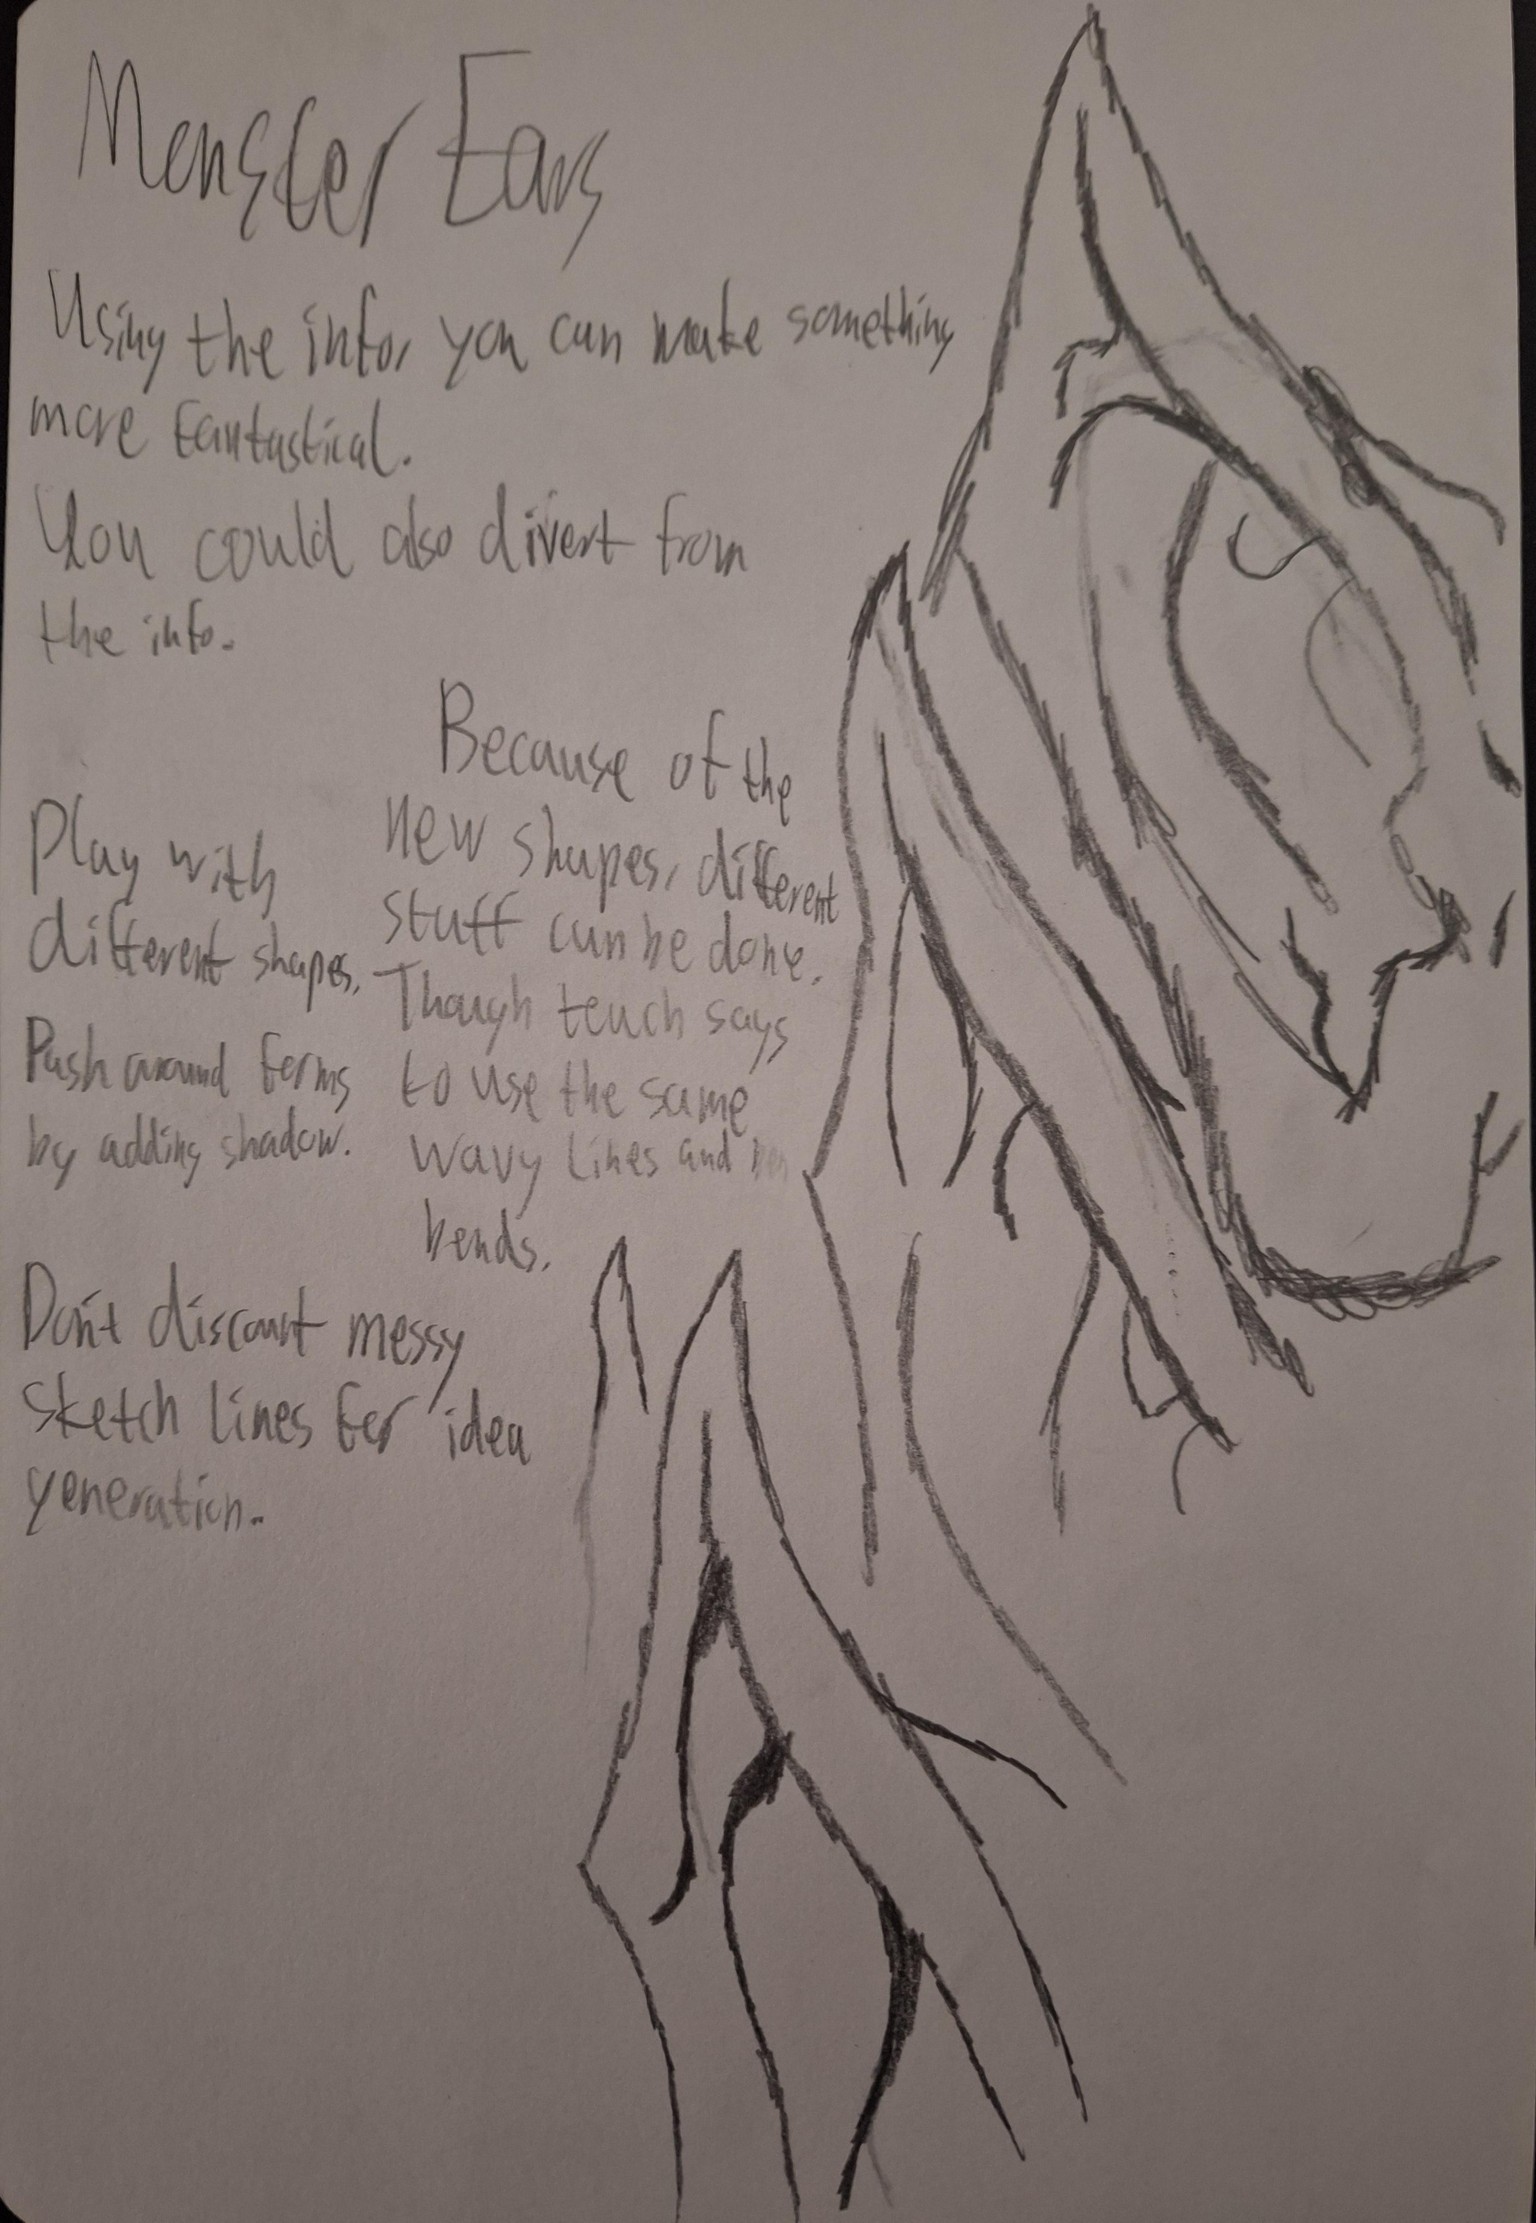 Monster Ears
Using the info, you can make something
more fantastical.
You could also divert from
the info.
Because of the
new shapes, different
stuff can be done.
Though teach says
to use the same
wavy lines and
bends.
Play with
different shapes.
Push around forms
by adding shadow.
Don't discount messy
sketch lines for idea
generation.